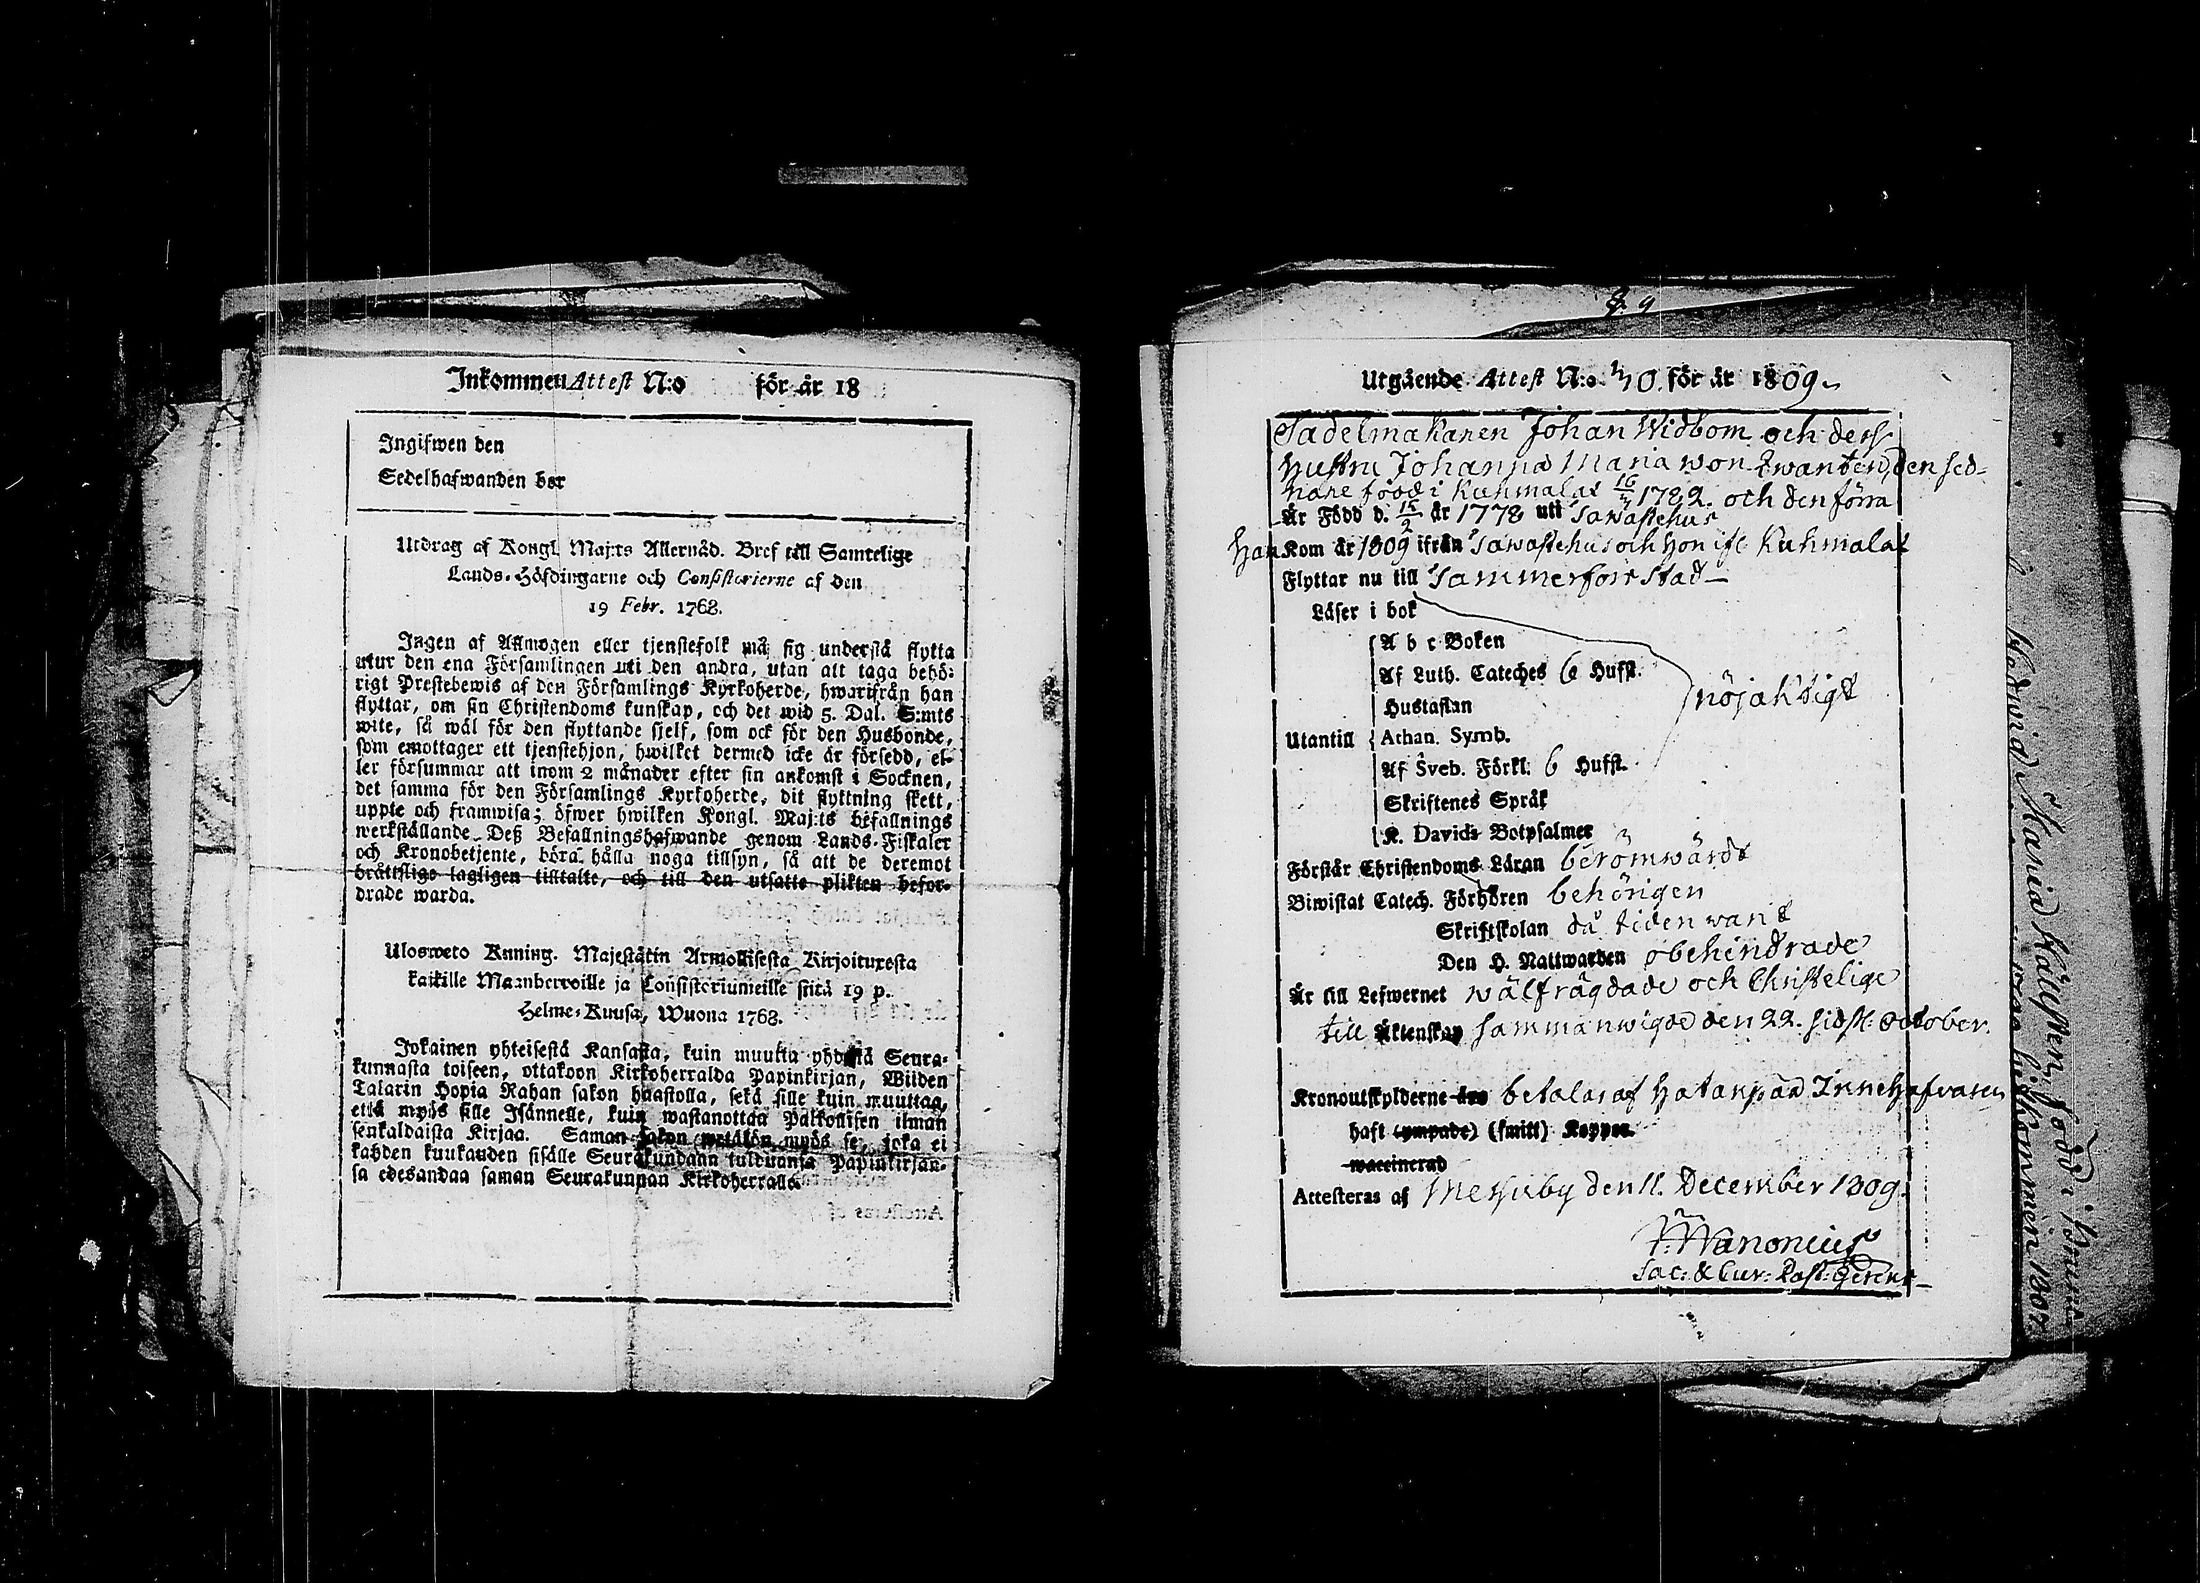 Inkommen Attest N:o för år 18
Ingifwen den
Sedelhafwanden bor
Utdrag af Kongl. Maj:ts Allernåd. Bref till Samtelige
Lands-Höfdingarne och Consistorierne af den
19 Febr. 1768.
Ingen af Allmogen eller tjenstefolk må sig understå flytta
utur den ena Församlingen uti den andra, utan att taga behö-
rigt Prestebewis af den Församlings Kyrkoherde, hwarifrån han
flyttar, om sin Christendoms kunskap, och det wid 5. Dal. S:mts
wite, så wäl för den flyttande sjelf, som ock för den Husbonde,
som emottager ett tjenstehjon, hwilket dermed icke är försedd, el-
ler försummar att inom 2 månader efter sin ankomst i Socknen,
det samma för den Församlings Kyrkoherde, dit flyttning skett,
uppte och framwisa; öfwer hwilken Kongl. Maj:ts befallnings
werkställande Deß Befallningshafwande genom Lands-Fiskaler
och Kronobetjente, böra hålla noga tillsyn, så att de deremot
bråttslige lagligen tilltalte, och till den utsatte plikten befor-
drade warda.
Ulosweto Kuning. Majestätin Armollisesta Kirjoituxesta
kaikille Maanherroille ja Consistoriumeille siitä 19 p.
Helme-Kuusa, Wuona 1768.
Jokainen yhteisestä Kansasta, kuin muutta yhdestä Seura-
kunnasta toiseen, ottakoon Kirkoherralda Papinkirjan, Wiiden
Talarin Hopia Rahan sakon haastolla, sekä sille kuin muuttaa,
että myös sille Isännelle, kuin wastanottaa Palkollisen ilman
senkaldaista Kirjaa. Saman sakon wetäkön myös se, joka ei
kahden kuukauden sisälle Seurakundaan tulduansa Papinkirjan-
sa edesandaa saman Seurakunnan Kirkoherralle.
Utgående Attest N:o 70. för år 1809
Sadelmakaren Johan Widbom och dess
Hustru Johanna Maria won Zwanten, den sed-
nare född i Kuhmalax 16/7 1782. och den förra
Är Född d. 15/2 år 1778 uti Tawastehus
Han Kom år 1809 ifrån Tawastehus och Hon ifr. Kuhmalax
Flyttar nu till Tammerfors Stad
Läser i bok
A b c Boken
Af Luth. Cateches 6 Hufst.
nöjaktigt
Hustaflan
Utantill Athan. Symb.
Af Sveb. Förkl. 6 Hufst.
Skriftenes Språk
K. Davids Botpsalmer
Förstår Christendoms Läran berömwärdt
Biwistat Catech. Förhören behörigen
Skriftskolan då tiden warit
Den H. Nattwarden obehindrade
Är till Lefwernet wälfrägdade och Christelige
till Äktenskap sammanwigde den 22. sidstl. October.
Kronoutskylderne betalas af Hatanpää Innehafwaren
haft (ympade) (smitt) Koppor.
waccinerad
Attesteras af Messuby den 11. December 1809.
Wanonius
Sac: & Cur: Past: Gerens
Hedwid Maria Hällsten, född i
hitkommen 180